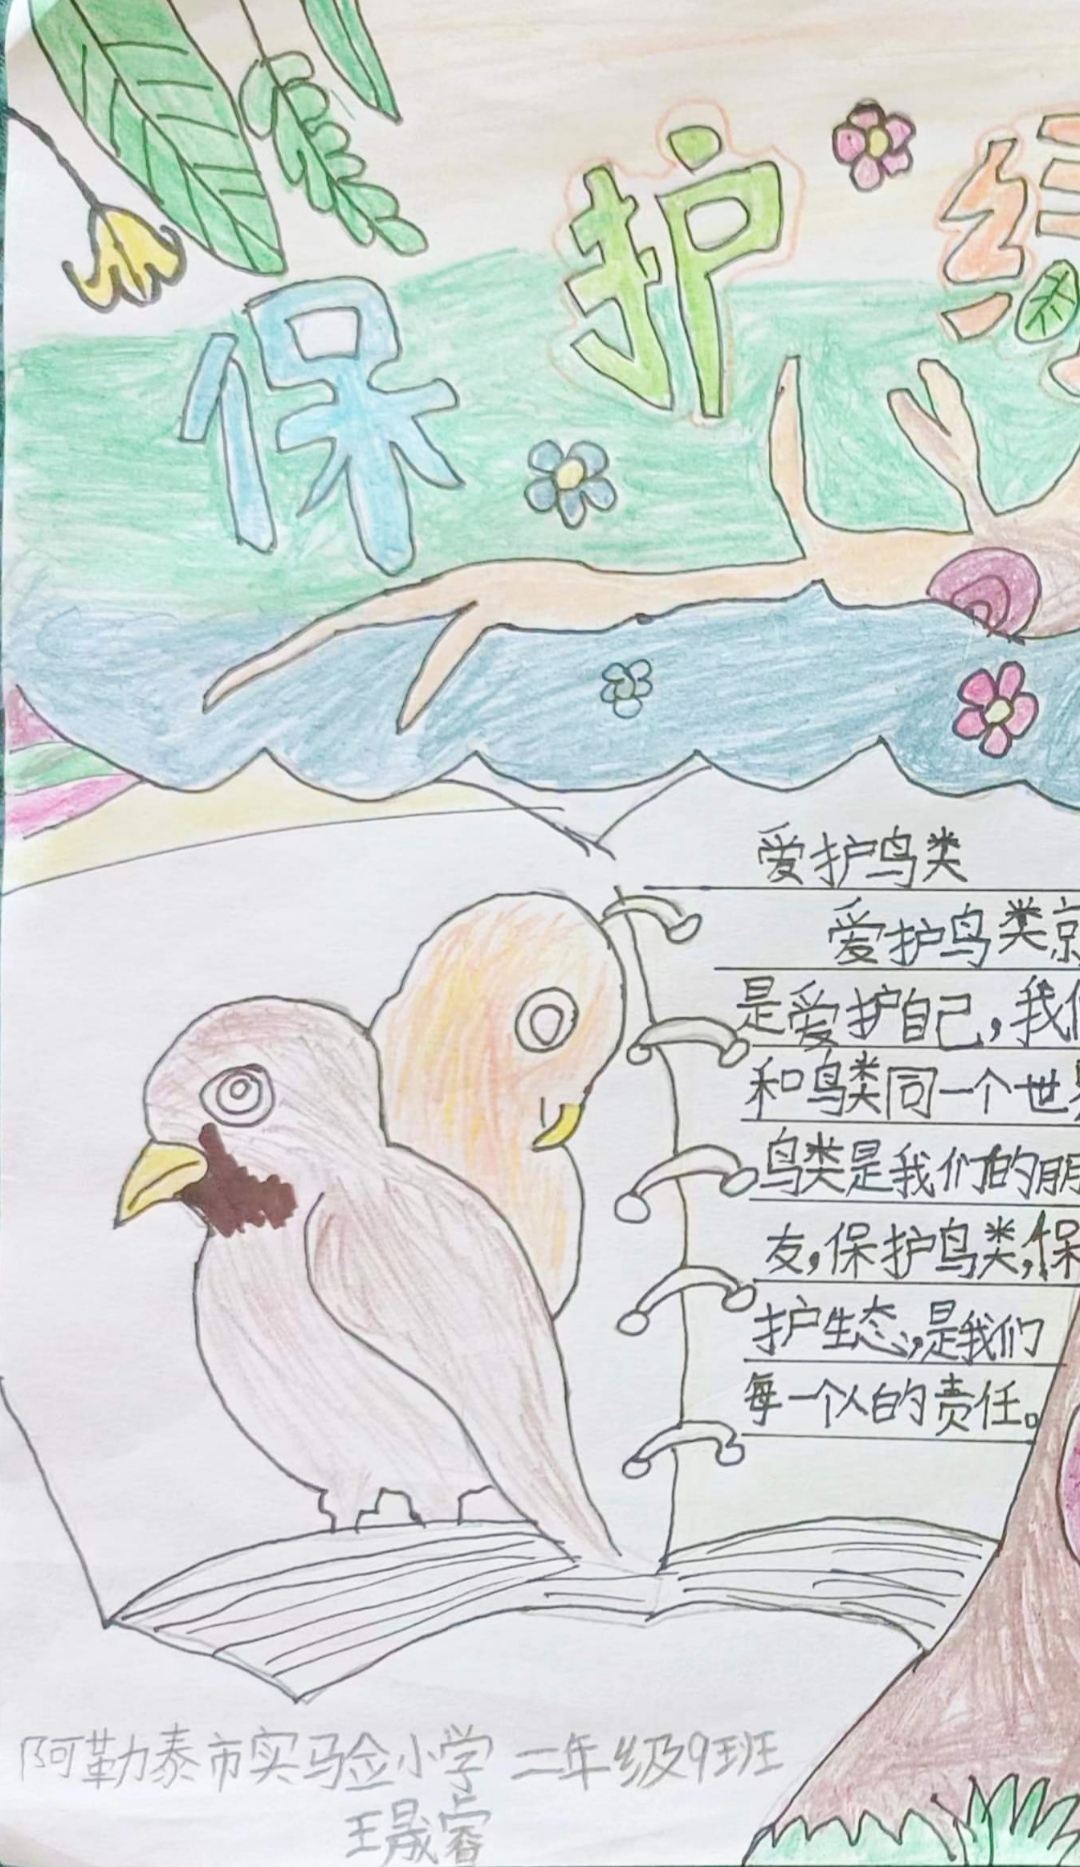 保护绿
爱护鸟类
爱护鸟类就
是爱护自己,我们
和鸟类同一个世界
鸟类是我们的朋
友,保护鸟类,保
护生态,是我们
每一个人的责任。
阿勒泰市实验小学 二年级9班
王晟睿